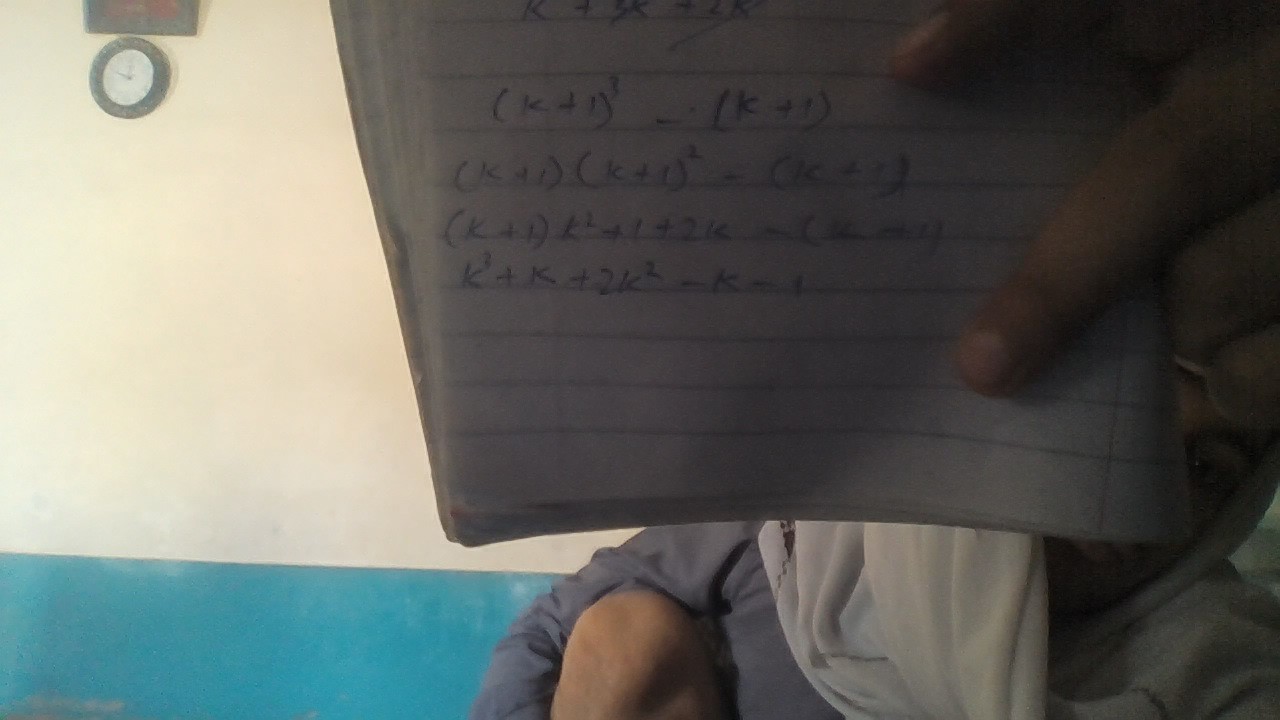 K + 3K + 2K
(K+1)³ - (K+1)
(K+1)(K+1)² - (K+1)
(K+1) K²+1+2K - (K+1)
K³+K+2K² -K-1